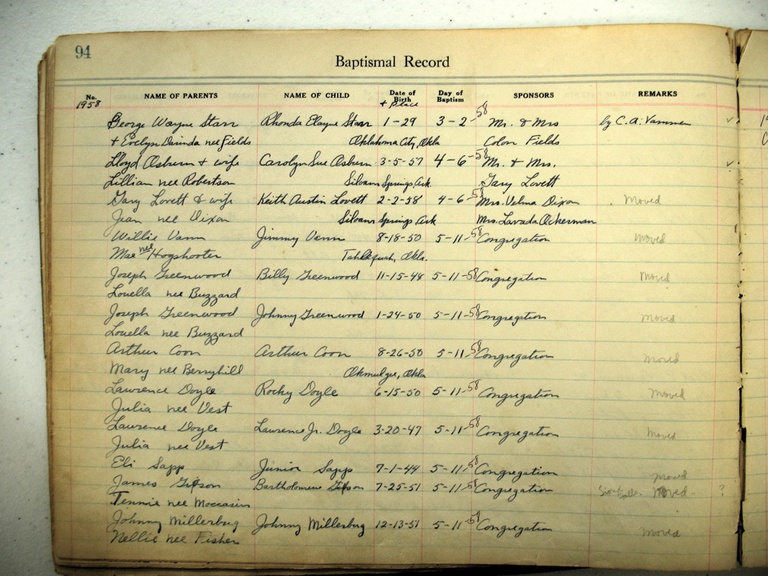 94
Baptismal Record
No. NAME OF PARENTS NAME OF CHILD Date of Birth Day of Baptism SPONSORS REMARKS
1958 + place
George Wayne Starr Rhonda Elayne Starr 1-29 3-2-58 Mr. & Mrs by C.A.
+ Evelyn Darinda nee Fields Oklahoma City, Okla Colon Fields
Lloyd Osburn + wife Carolyn Sue Osburn 3-5-57 4-6-58 Mr. & Mrs.
Lillian nee Robertson Siloam Springs Ark Gary Lovett
Gary Lovett & wife Keith Austin Lovett 2-2-58 4-6-58 Mrs. Velma Dixon Moved
Jean nee Dixon Siloam Springs Ark Mrs. Lavada Ackerman
Willie Vann Jimmy Vann 8-18-50 5-11-58 Congregation Moved
Mae nee Hogshooter Tahlequah, Okla.
Joseph Greenwood Billy Greenwood 11-15-48 5-11-58 Congregation Moved
Louella nee Buzzard
Joseph Greenwood Johnny Greenwood 1-24-50 5-11-58 Congregation Moved
Louella nee Buzzard
Arthur Coon Arthur Coon 8-26-50 5-11-58 Congregation Moved
Mary nee Berryhill Okmulgee, Okla
Lawrence Doyle Rocky Doyle 6-15-50 5-11-58 Congregation Moved
Julia nee Vest
Lawrence Doyle Lawrence Jr. Doyle 3-20-47 5-11-58 Congregation Moved
Julia nee Vest
Eli Sapp Junior Sapp 7-1-44 5-11-58 Congregation Moved
James Gipson Bartholomew Gipson 7-25-51 5-11-58 Congregation Moved. ?
Tennie nee Moccasin
Johnny Millerbug Johnny Millerbug 12-13-51 5-11-58 Congregation Moved
Nellie nee Fisher